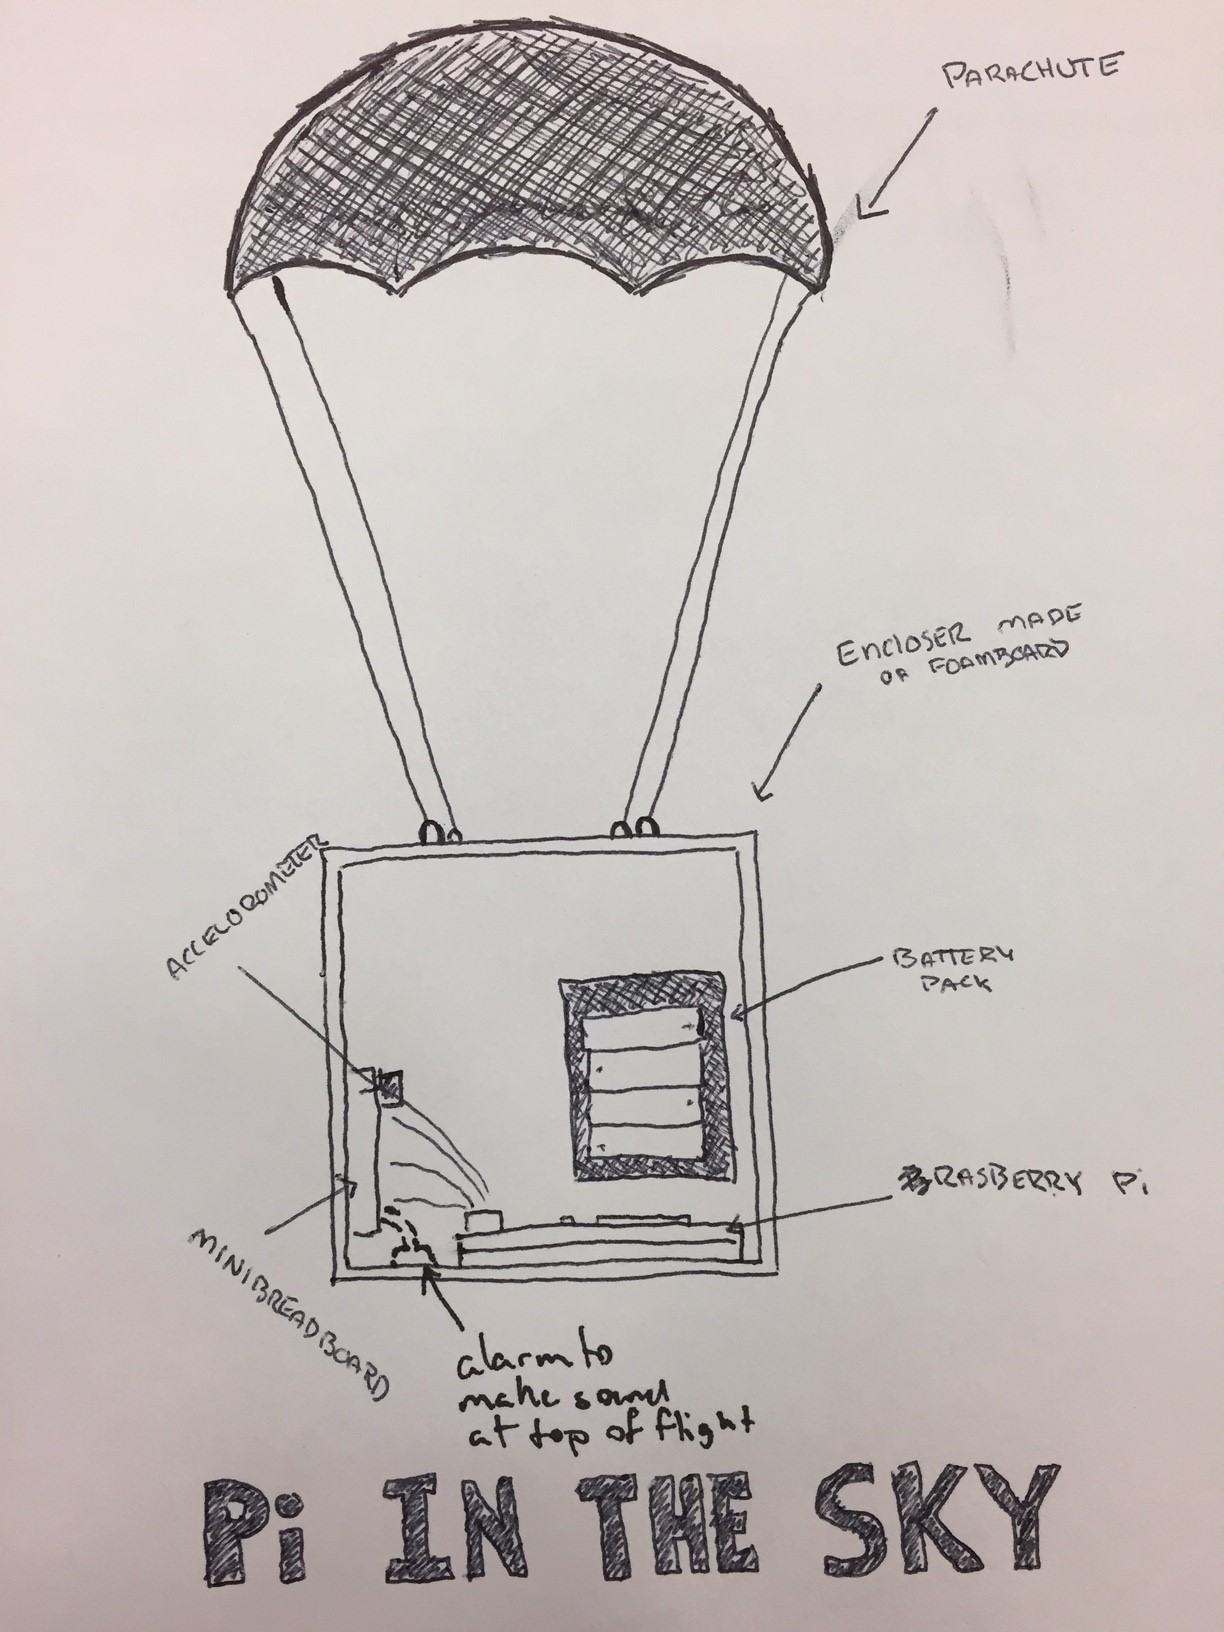 PARACHUTE
ENCLOSER MADE
OF FOAMBOARD
ACCELOROMETER
BATTERY
PACK
RASBERRY Pi
MINIBREADBOARD
alarm to
make sound
at top of flight
Pi IN THE SKY